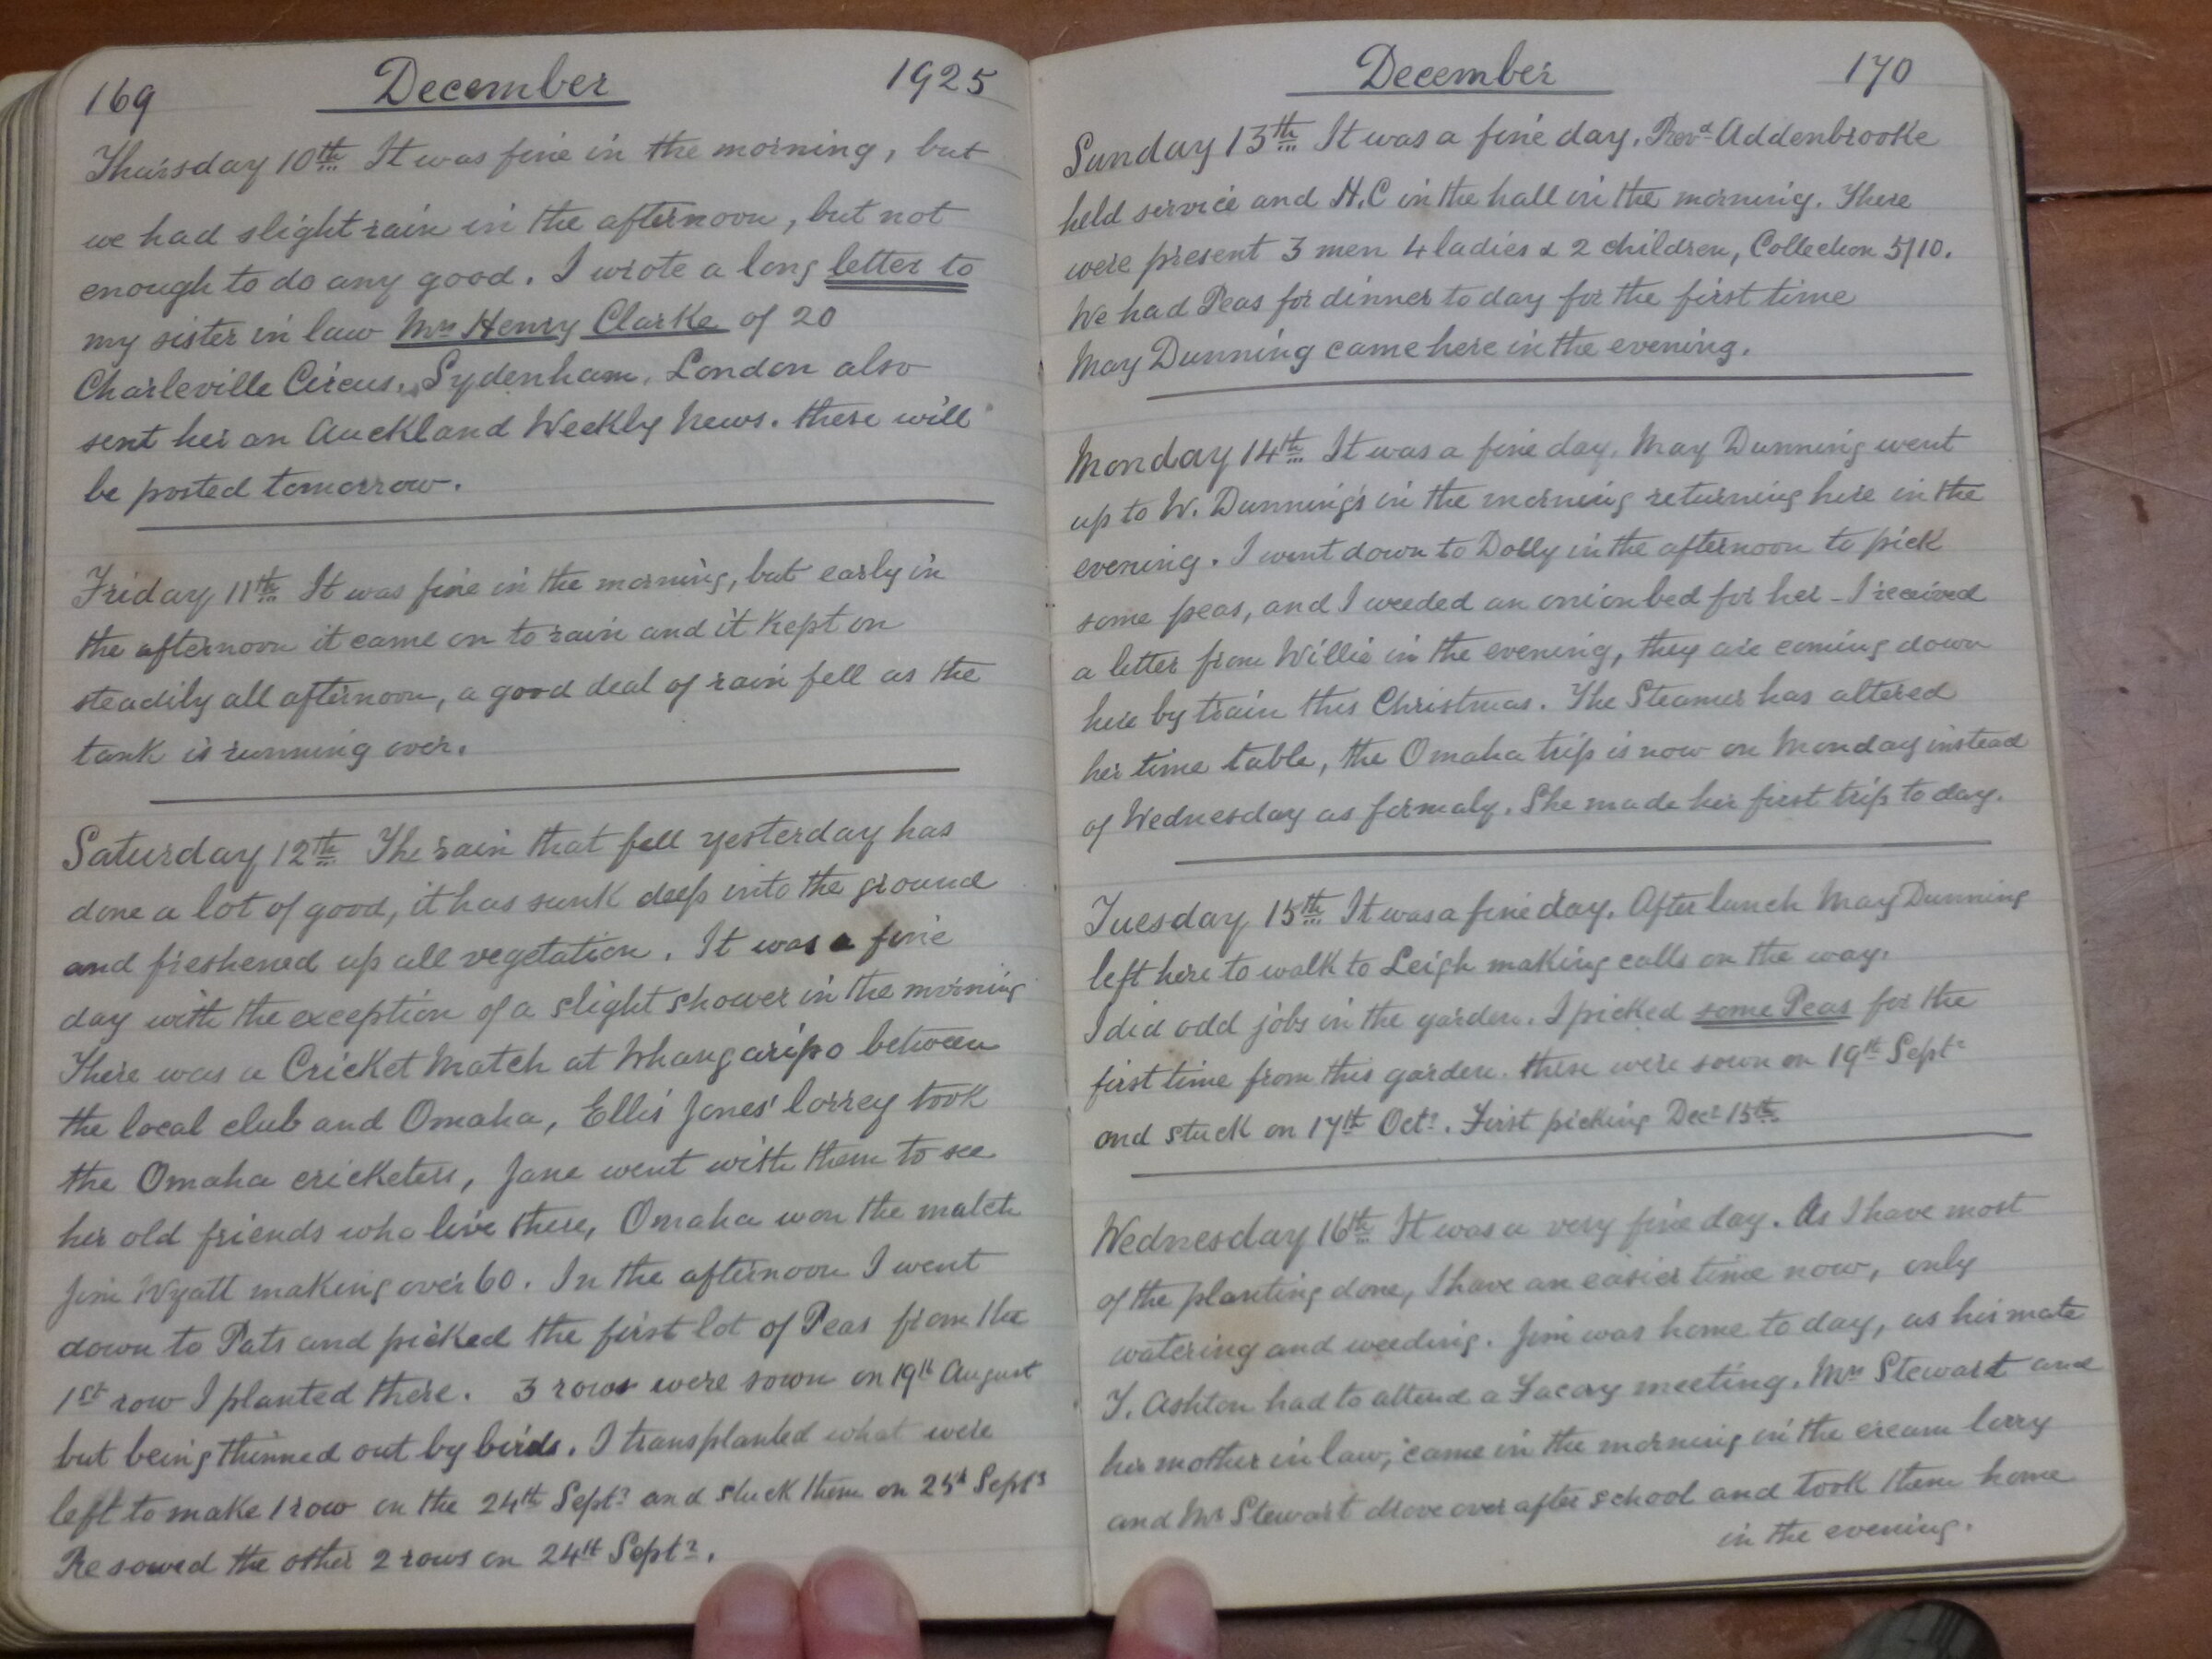 169 December 1925
Thursday 10th It was fine in the morning, but
we had slight rain in the afternoon, but not
enough to do any good. I wrote a long letter to
my sister in law Mrs Henry Clarke of 20
Charleville Circus, Sydenham, London also
sent her an Auckland Weekly News. these will
be posted tomorrow.
Friday 11th It was fine in the morning, but early in
the afternoon it came on to rain and it kept on
steadily all afternoon, a good deal of rain fell as the
tank is running over.
Saturday 12th The rain that fell yesterday has
done a lot of good, it has sunk deep into the ground
and freshened up all vegetation. It was a fine
day with the exception of a slight shower in the morning
There was a Cricket Match at Whangaripo between
the local club and Omaha, Ellis Jones' lorrey took
the Omaha cricketers, Jane went with them to see
her old friends who live there, Omaha won the match
Jim Wyatt making over 60. In the afternoon I went
down to Pats and picked the first lot of Peas from the
1st row I planted there. 3 rows were sown on 19th August
but being thinned out by birds. I transplanted what were
left to make 1 row on the 24th Septr and stuck them on 25th Septr
Resowed the other 2 rows on 24th Septr.
December 170
Sunday 13th It was a fine day. Revd Addenbrooke
held service and H.C in the hall in the morning. There
were present 3 men 4 ladies & 2 children, Collection 5/10.
We had Peas for dinner to day for the first time
May Dunning came here in the evening.
Monday 14th It was a fine day. May Dunning went
up to W. Dunning's in the morning returning here in the
evening. I went down to Dolly in the afternoon to pick
some peas, and I weeded an onion bed for her - I received
a letter from Willie in the evening, they are coming down
here by train this Christmas. The Steamer has altered
her time table, the Omaha trip is now on Monday instead
of Wednesday as formaly. She made her first trip to day.
Tuesday 15th It was a fine day. After lunch May Dunning
left here to walk to Leigh making calls on the way.
I did odd jobs in the garden. I picked some Peas for the
first time from this garden. these were sown on 19th Septr
and stuck on 17th Octr. First picking Decr 15th
Wednesday 16th It was a very fine day. As I have most
of the planting done, I have an easier time now, only
watering and weeding. Jim was home to day, as his mate
T. Ashton had to attend a Facory meeting. Mrs Stewart and
her mother in law, came in the morning in the cream lorry
and Mr Stewart drove over after school and took them home
in the evening.